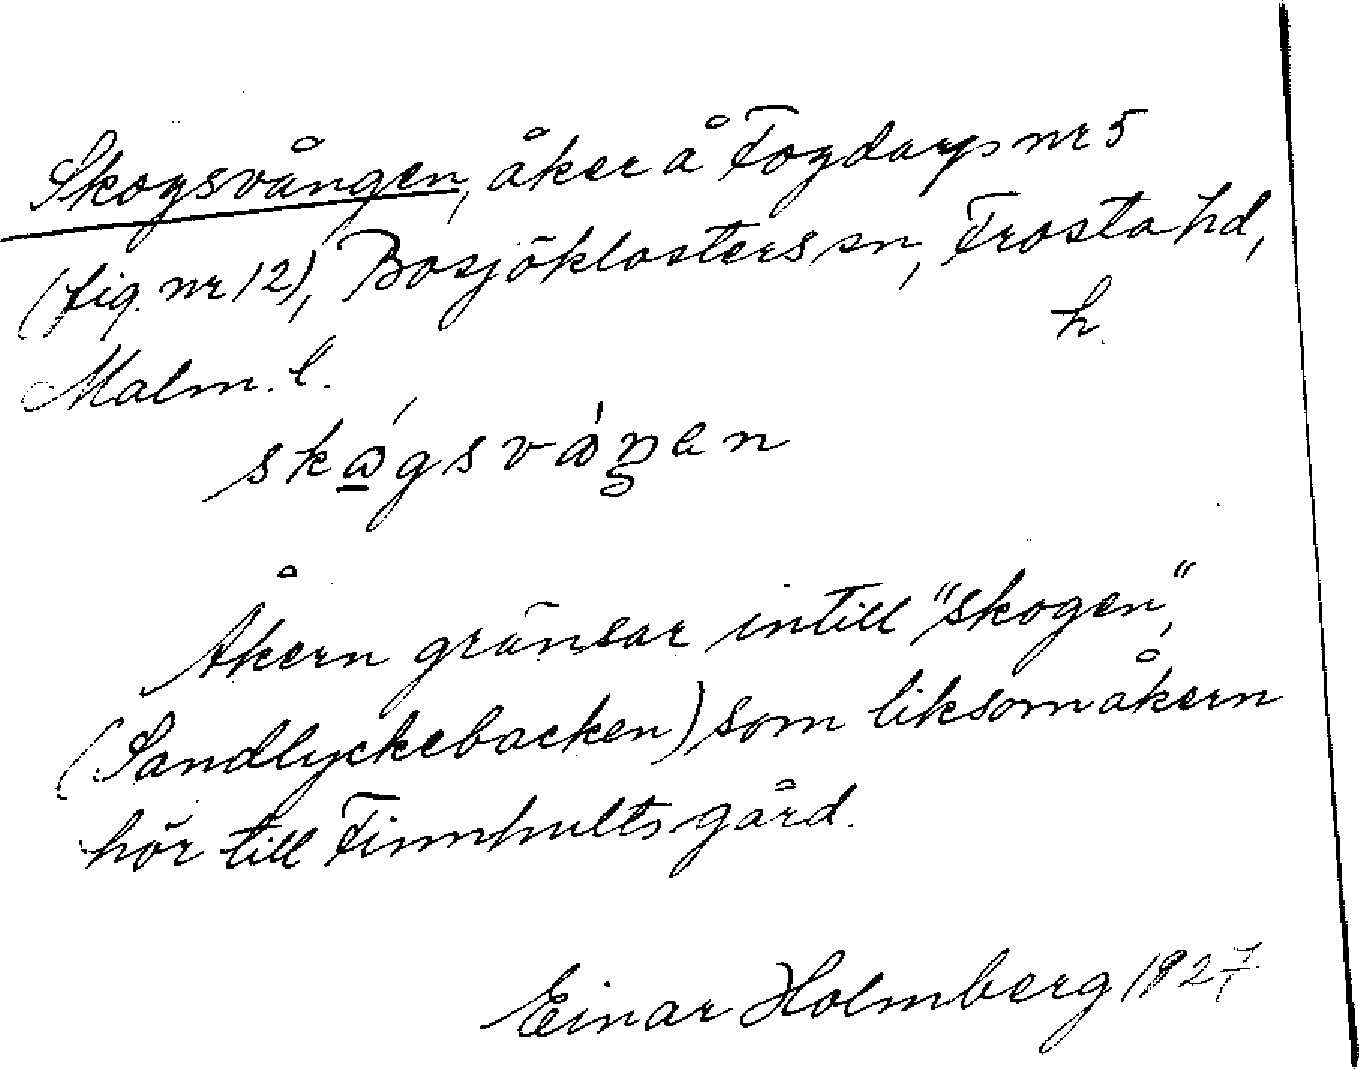 Skogsvången, åker å Fogdarps nr 5
(fig. nr 12), Bosjöklosters sn, Frosta hd,
Malm. l.
h.
skǻgsvåŋen
Åkern gränsar intill "skogen",
(Sandlyckebacken) som liksom åkern
hör till Finnhults gård.
Einar Holmberg 1927